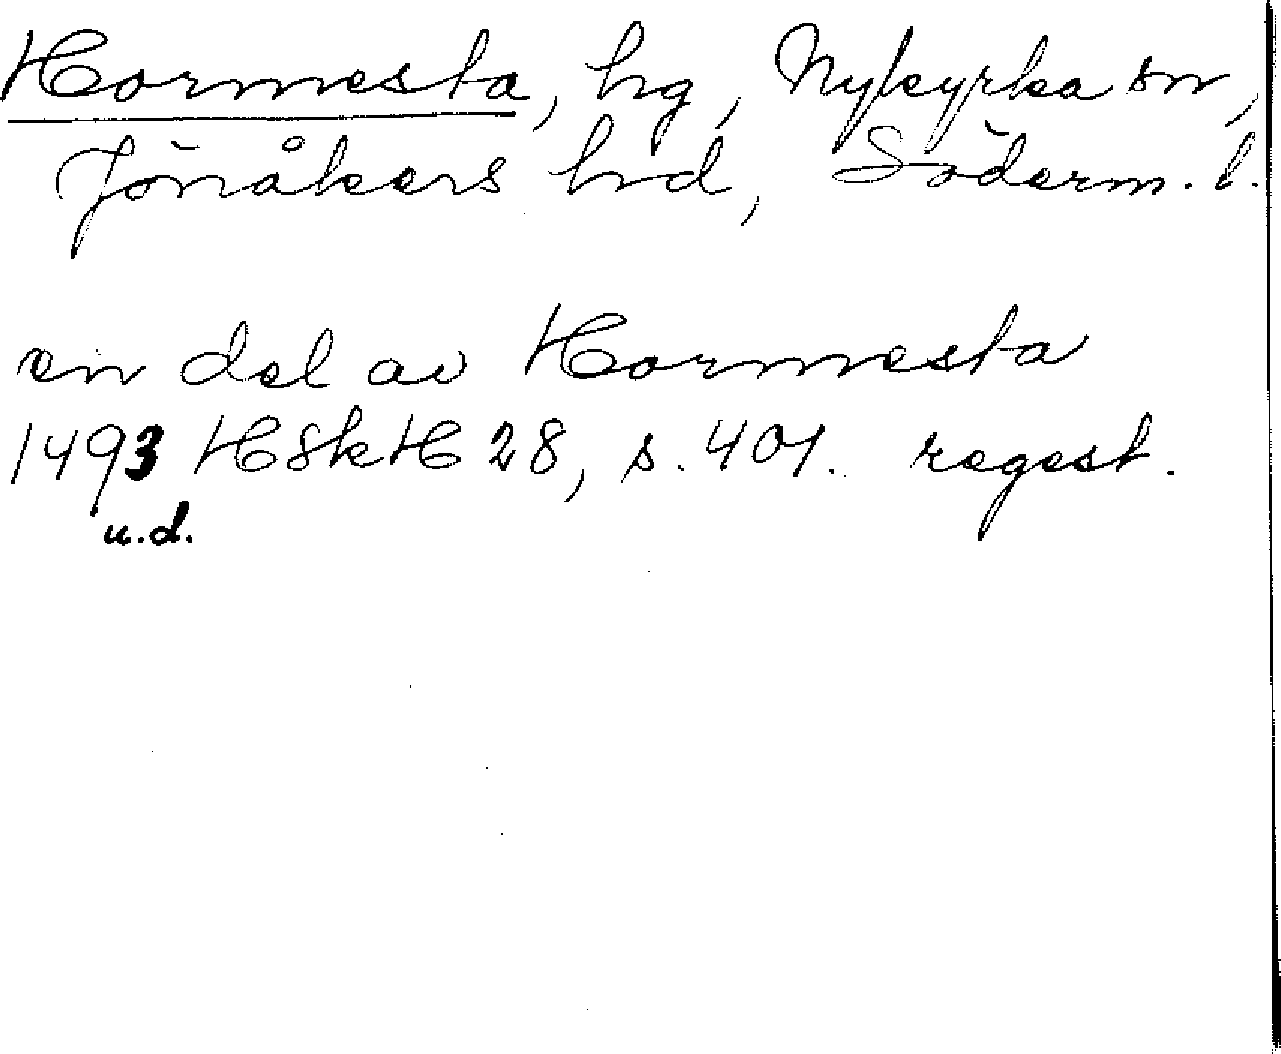 Hormesta, hg, Nykyrka sn,
Jönåkers hd, Söderm. l.
en del av Hormesta
1493 HSkH 28, s. 401. regest.
u.d.